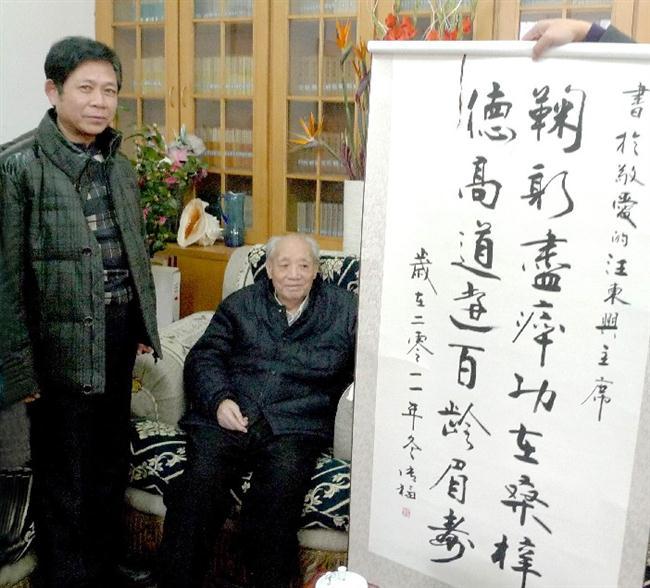 書於敬愛的汪東興主席
鞠躬盡瘁功在桑梓
德高道達百龄眉壽
歲在二零一一年冬福